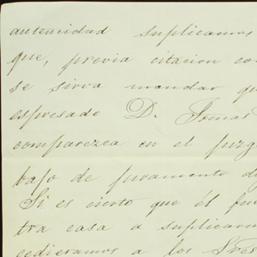 autencidad suplicamos
que, previa citacion con
se sirva mandar qu
espresado D. Tomas
comparezca en el Juzg
bajo de juramento de
Si es cierto que él fu
tra casa a suplicarn
cedieramos a los Tres